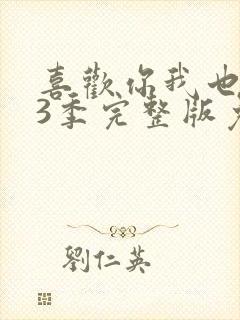 喜歡你我也
3季完整版
劉仁英